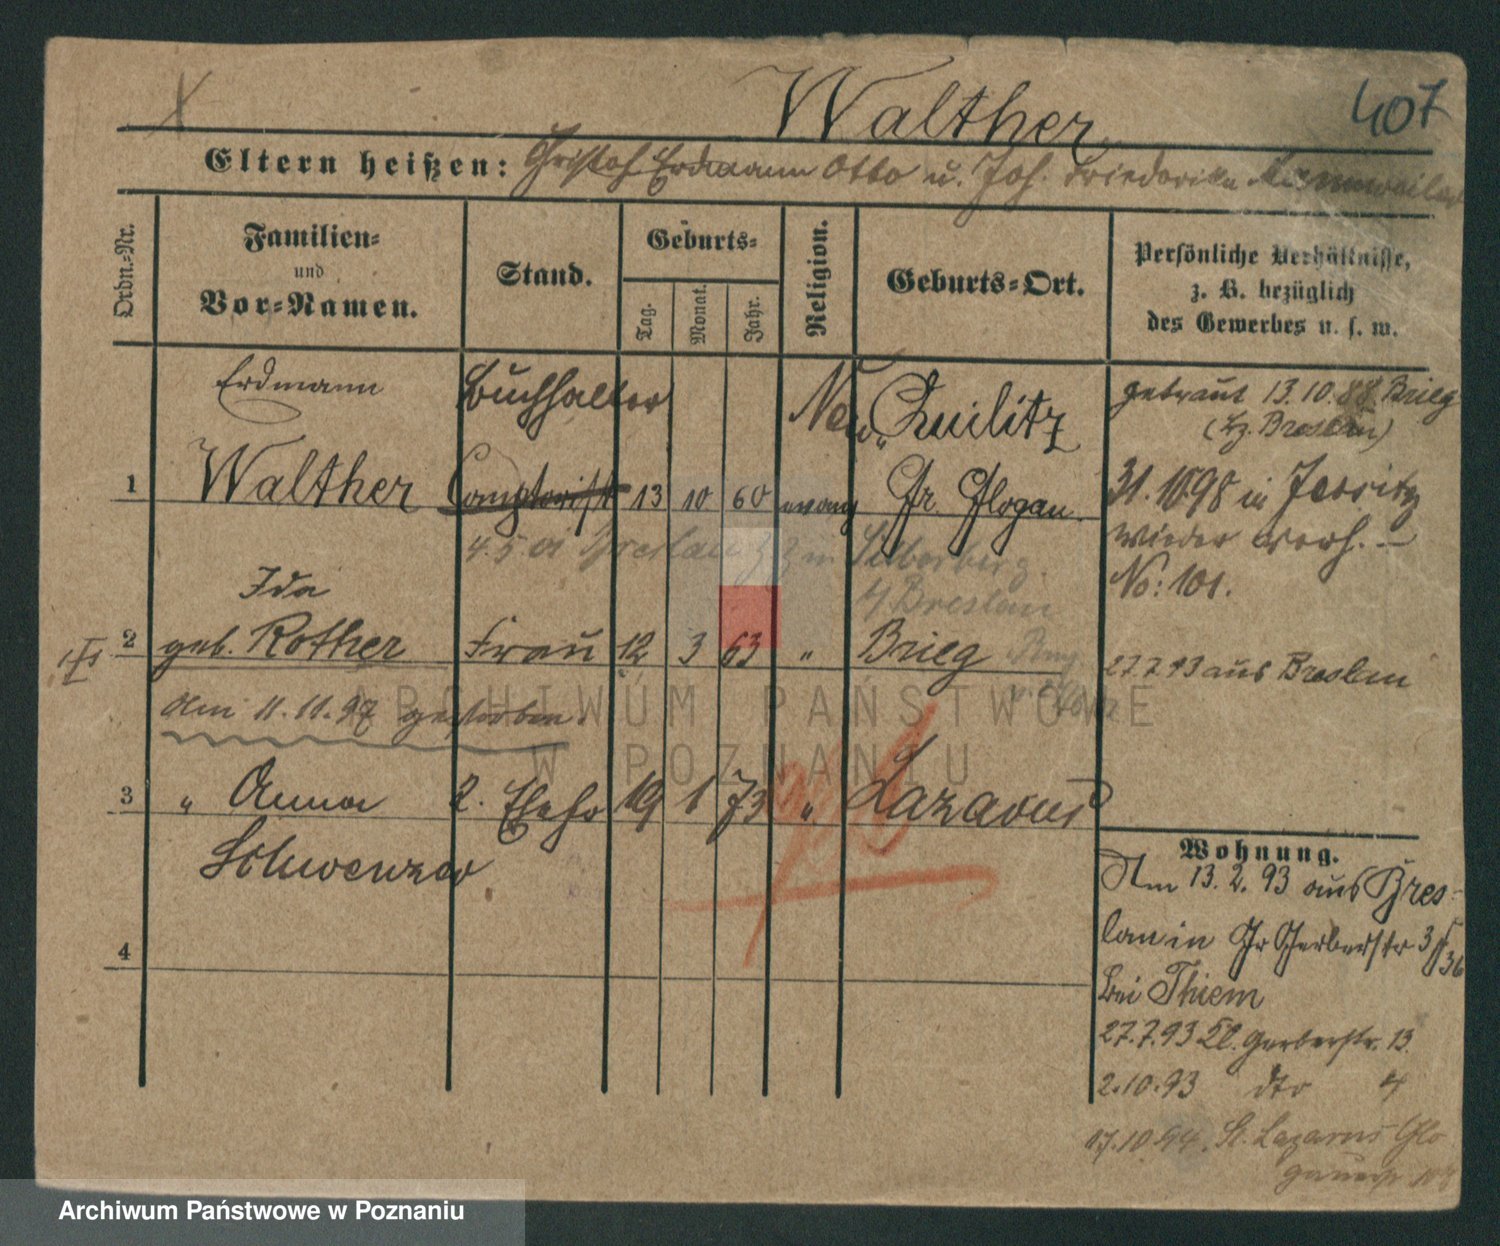 Walther
407
Eltern heißen: Christof Erdmann Otto u. Joh. Friederike
Ordn.-Nr.
Familien-
und
Vor-Namen.
Stand.
Geburts-
Tag.
Monat.
Jahr.
Religion.
Geburts-Ort.
Persönliche Verhältnisse,
z. B. bezüglich
des Gewerbes u. s. w.
Erdmann Buchhalter
1 Walther Comptorist 13 10 60 evang Gr. Glogau
Ida
2 geb. Rother Frau 12 3 63 " Brieg
Am 11.11.97 gestorben.
3 " Anna 2. Ehefr 19 1 73 " Lazarus
Schwenzer
4
4 Breslau
getraut 13.10.88 Brieg
(Bz. Breslau)
31.10.98 in Jersitz
wieder verh. —
No: 101.
27.7.93 aus Breslau
Wohnung.
Am 13.2.93 aus Bres-
lau in Gr Gerberstr 36
bei Thiem
27.7.93 Kl. Gerberstr. 13
2.10.93 dto 4
17.10.94. St. Lazarus Glo
ARCHIWUM PAŃSTWOWE
W POZNANIU
Archiwum Państwowe w Poznaniu